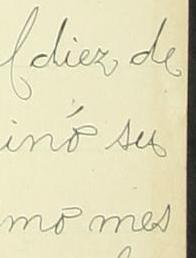 l diez de
inó su
mo mes